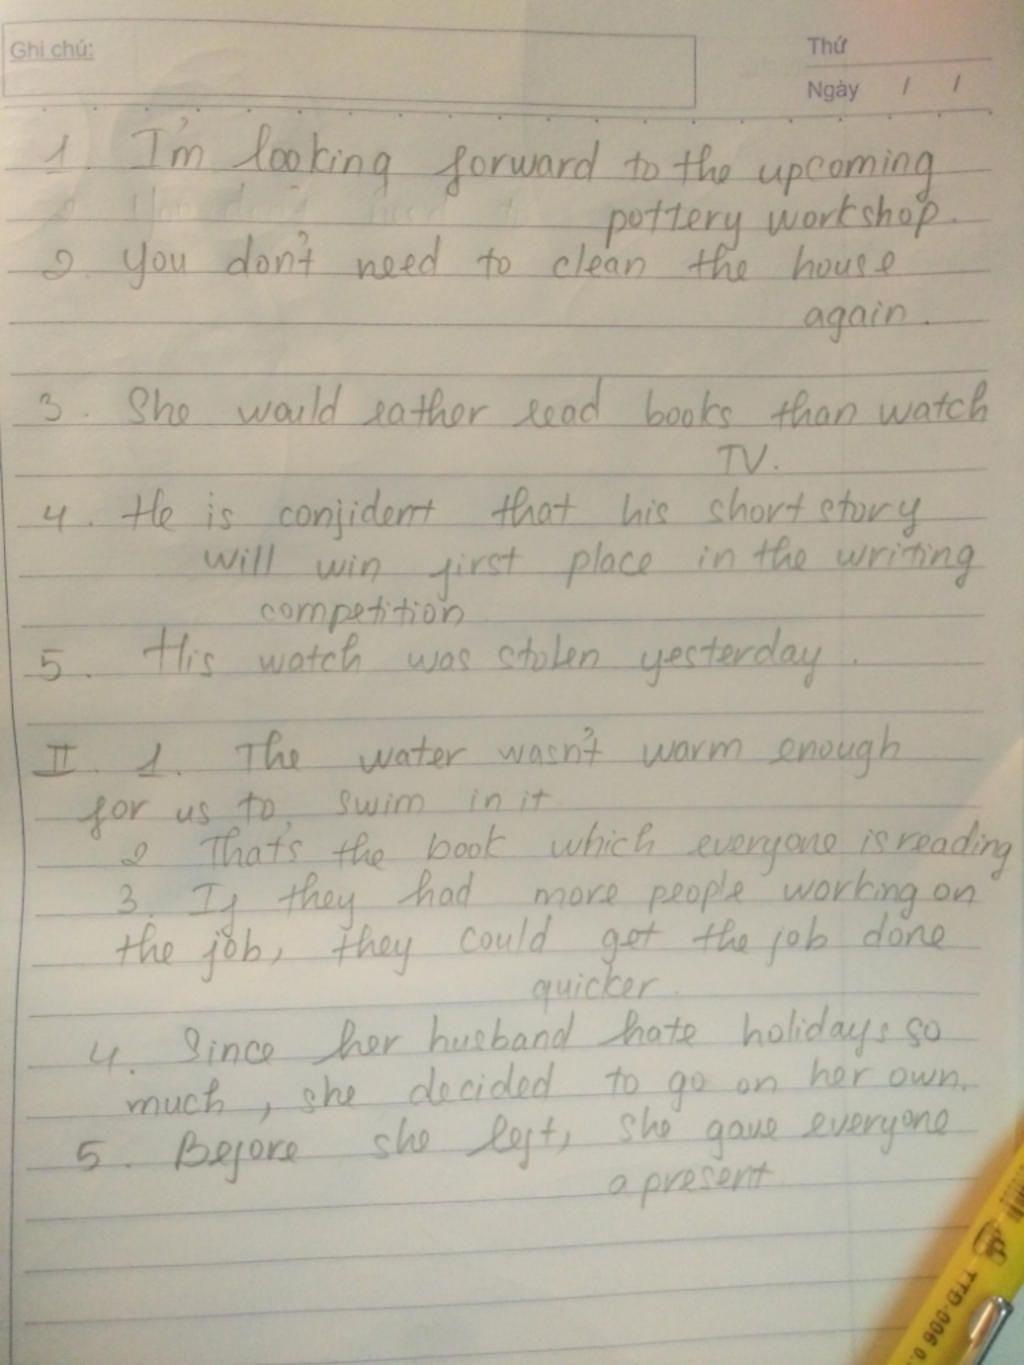 Ghi chú:
Thứ
Ngày / /
1. I'm looking forward to the upcoming
pottery workshop.
2. You don't need to clean the house
again.
3. She would rather read books than watch
TV.
4. He is confident that his short story
will win first place in the writing
competition
5. His watch was stolen yesterday.
II. 1. The water wasn't warm enough
for us to swim in it
2 That's the book which everyone is reading
3. If they had more people working on
the job, they could get the job done
quicker.
4. Since her husband hate holidays so
much, she decided to go on her own.
5. Before she left, she gave everyone
a present.
TTD-006 0.